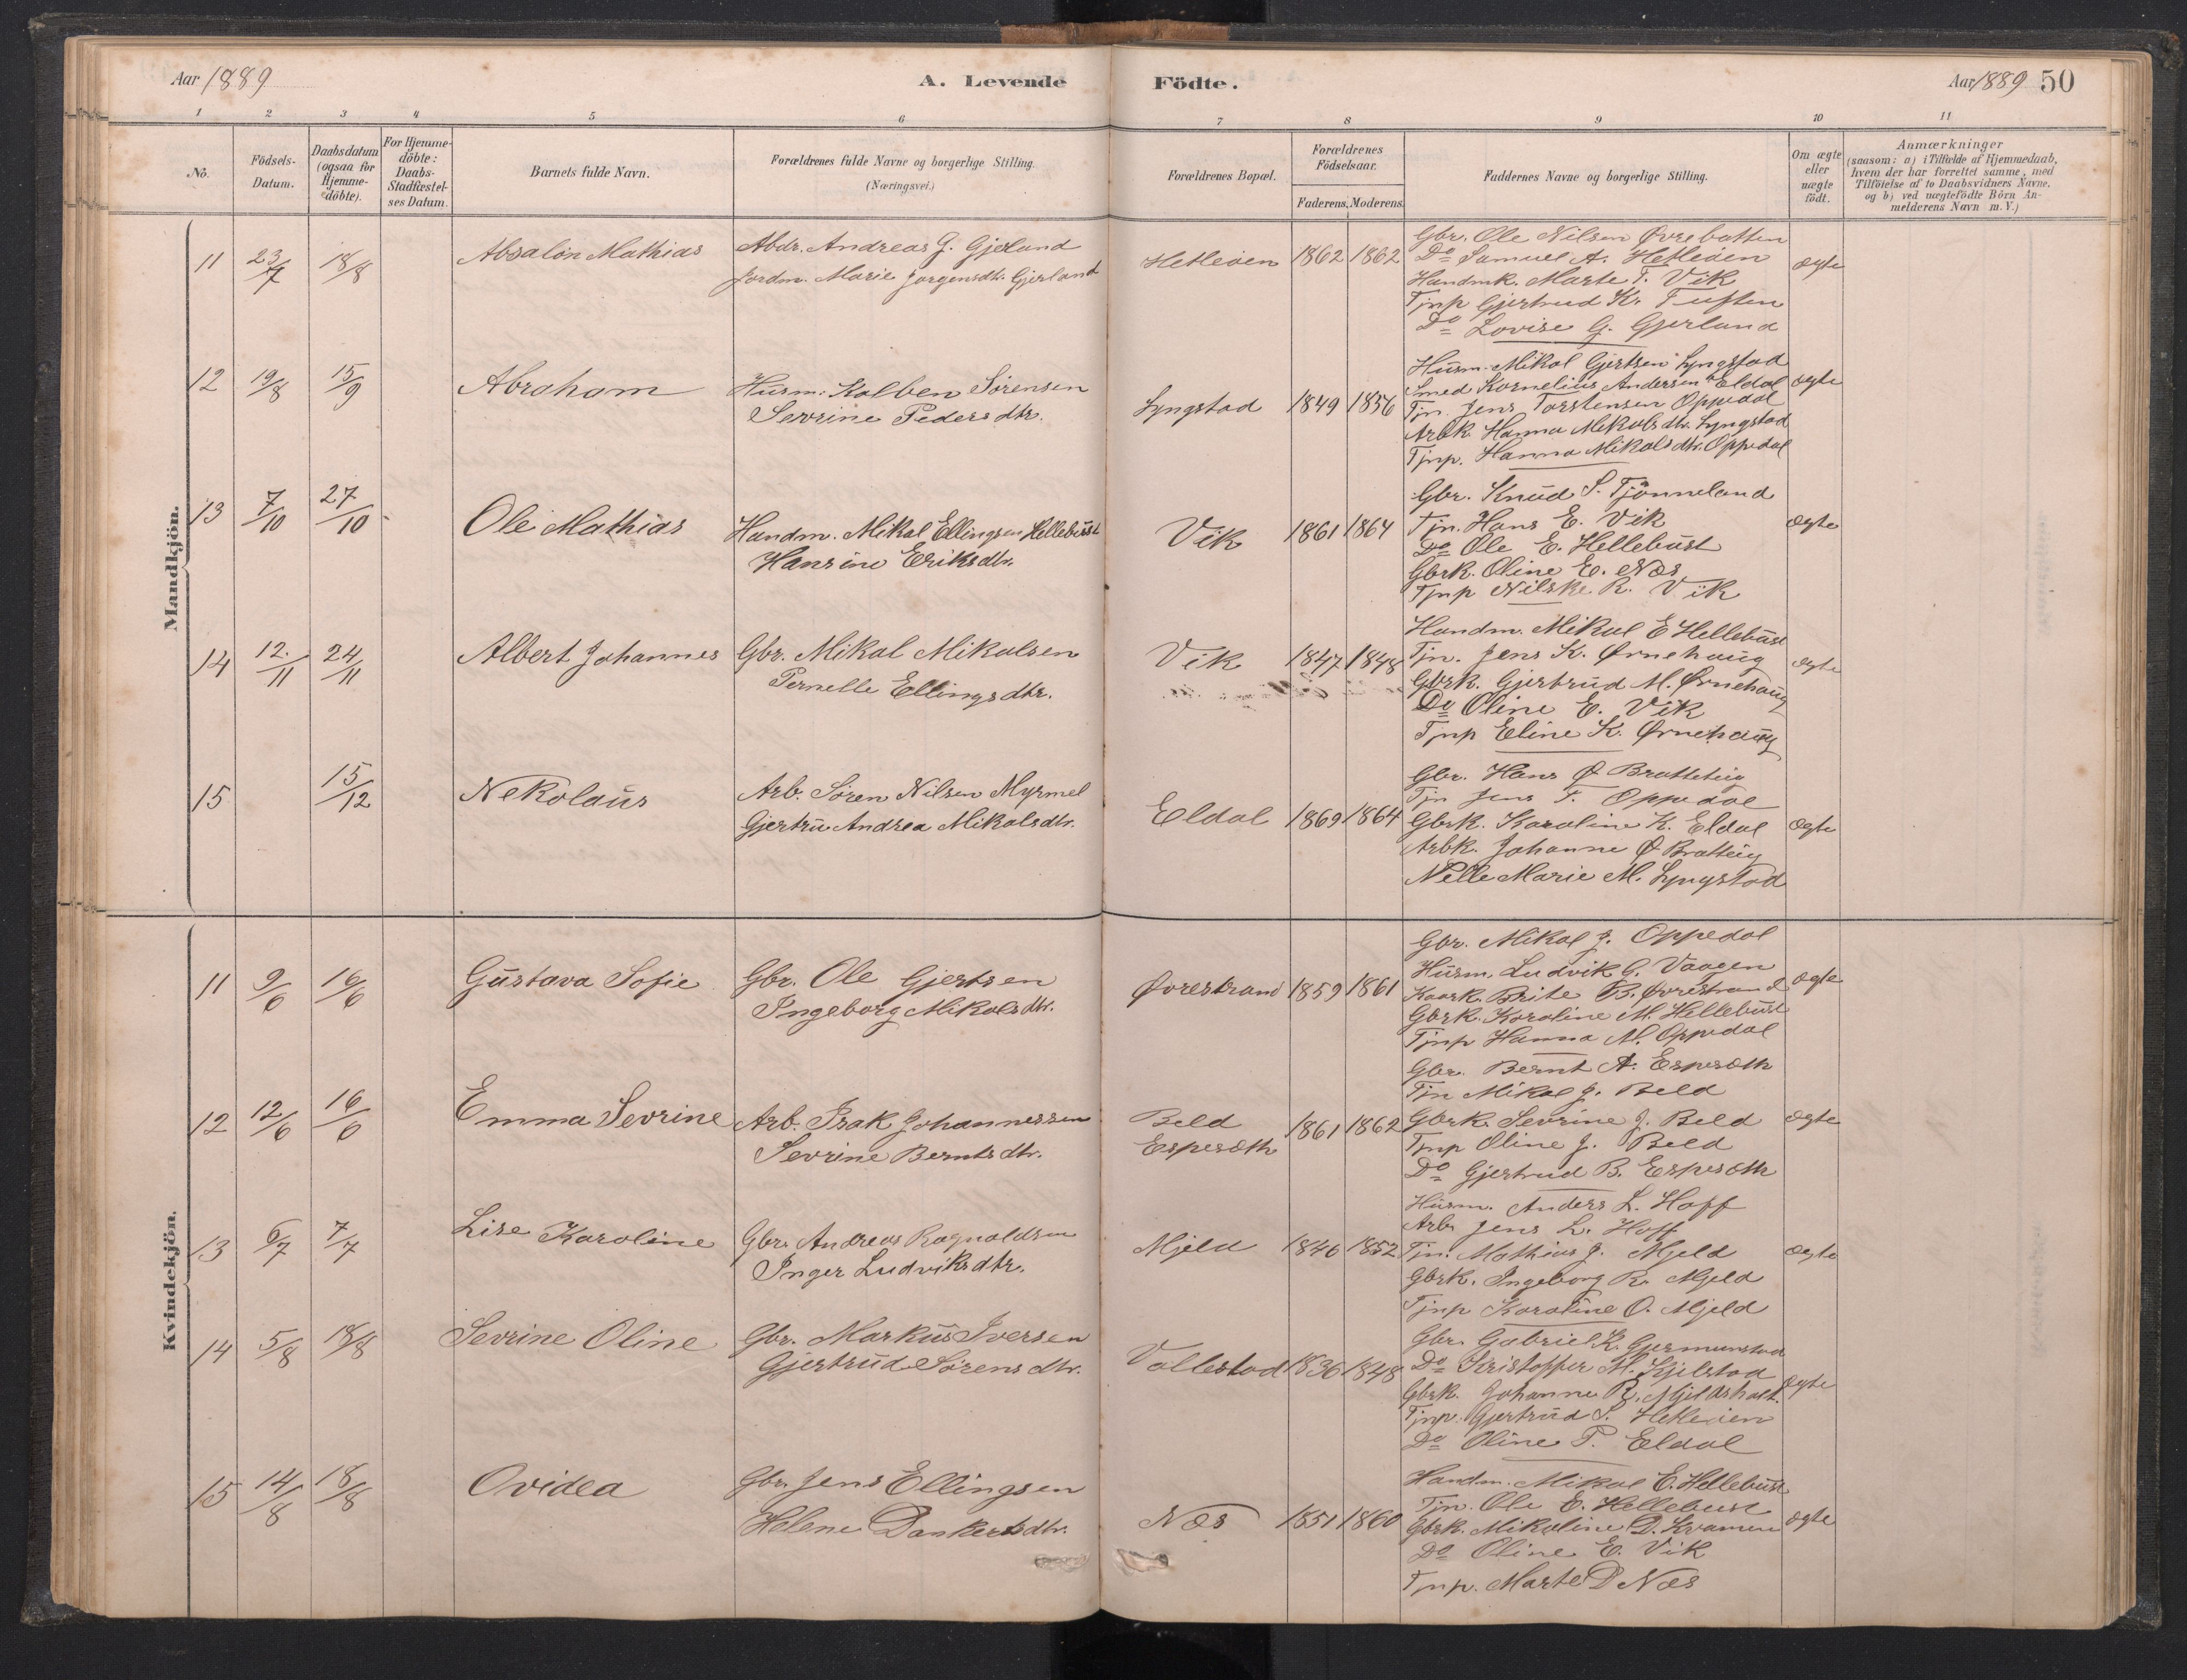 Aar 1889
A. Levende Födte.
Aar 1889 50
1 2 3 4 5 6 7 8 9 10 11
No.
Födsels-Datum.
Daabsdatum (ogsaa for Hjemme-döbte).
For Hjemme-döbte: Daabs-Stadfæstel-ses Datum.
Barnets fulde Navn.
Forældrenes fulde Navne og borgerlige Stilling.
(Næringsvei.)
Forældrenes Bopæl.
Forældrenes Födselsaar.
Faderens. Moderens.
Faddernes Navne og borgerlige Stilling.
Om ægte eller uægte födt.
Anmærkninger
(saasom: a) i Tilfælde af Hjemmedaab,
hvem der har forrettet samme, med
Tilföielse af to Daabsvidners Navne.
og b) ved uægtefödte Börn An-
melderens Navn m. V.)
Mandkjön.
11 23/7 18/8 Absalon Mathias
Abdr. Andreas G. Gjerland
Jordm. Marie Jørgensdtr. Gjerland
Hetleøen 1862 1862
Gbr. Ole Nilsen Øvrebotten
Do Samuel A. Hetleøen
Handmk. Marte T. Vik
Tjnp Gjertrud K. Tuften
Do Lovise G. Gjerland
ægte
12 19/8 15/9 Abraham
Husm. Kolben Sørensen
Sevrine Pedersdtr.
Lyngstad 1849 1856
Husm. Mikal Gjertsen Lyngstad
Smed Kornelius Andersen Eldal
Tjn. Jens Torstensen Oppedal
Arbk. Hanna Mikalsdtr. Lyngstad
Tjnp. Hanna Mikalsdtr. Oppedal
ægte
13 7/10 27/10 Ole Mathias
Handm. Mikal Ellingsen Hellebust
Hansine Eriksdtr.
Vik 1861 1864
Gbr. Knud S. Tjønneland
Tjn. Hans E. Vik
Do Ole E. Hellebust
Gbrk. Oline E. Næs
Tjnp Nilske R. Vik
ægte
14 12/11 24/11 Albert Johannes
Gbr. Mikal Mikalsen
Pernelle Ellingsdtr.
Vik 1847 1848
Handm. Mikal E Hellebust
Tjn. Jens K. Ørnehaug
Gbrk. Gjertrud M. Ørnehaug
Do Oline E. Vik
Tjnp Eline K. Ørnehaug
ægte
15 15/12 Nekolaus
Arb. Søren Nilsen Myrmel
Gjertru Andrea Mikalsdtr.
Eldal 1869 1864
Gbr. Hans Ø Bratteteig
Tjn Jens T. Oppedal
Gbrk. Karoline K. Eldal
Arbk. Johanne Ø Bratteig
Nelle Marie M. Lyngstad
ægte
Kvindekjön.
11 9/6 16/6 Gustava Sofie
Gbr. Ole Gjertsen
Ingeborg Mikalsdtr.
Øvrestrand 1859 1861
Gbr. Mikal J. Oppedal
Husm. Ludvik G. Vaagen
Kaark. Brite B. Øvrestrand
Gbrk. Karoline M. Hellebust
Tjnp Hanna M. Oppedal
ægte
12 12/6 16/6 Emma Sevrine
Arb. Isak Johannessen
Sevrine Berntsdtr.
Beld
Espesæth
1861 1862
Gbr. Bernt A. Espesæth
Tjn Mikal J. Beld
Gbrk. Sevrine J. Beld
Tjnp Oline J. Beld
Do Gjertrud B. Espesæth
ægte
13 6/7 7/7 Lise Karoline
Gbr. Andreas Ragnaldsen
Inger Ludviksdtr.
Mjeld 1846 1852
Husm. Anders L. Hoff
Arb. Jens L. Hoff
Tjn. Mathias J. Mjeld
Gbrk. Ingeborg R. Mjeld
Tjnp Karoline O. Mjeld
ægte
14 5/8 18/8 Sevrine Oline
Gbr. Markus Iversen
Gjertrud Sørensdtr.
Vallestad 1836 1848
Gbr. Gabriel K. Gjermunstad
Do Kristoffer M. Kjelstad
Gbrk. Johanne R. Mjeldshalt.
Tjnp. Gjertrud S. Hetleøen
Do Oline P. Eldal
ægte
15 14/8 18/8 Ovidea
Gbr. Jens Ellingsen
Helene Dankertsdtr.
Næs 1851 1860
Handm. Mikal E. Hellebust
Tjn. Ole E. Hellebust
Gbrk. Mikaline D. Kvamen
Do Oline E. Vik
Tjnp. Marte D Næs
ægte